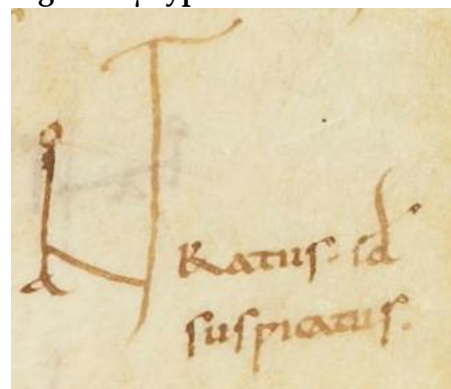 Ratus· id
suspicatus.